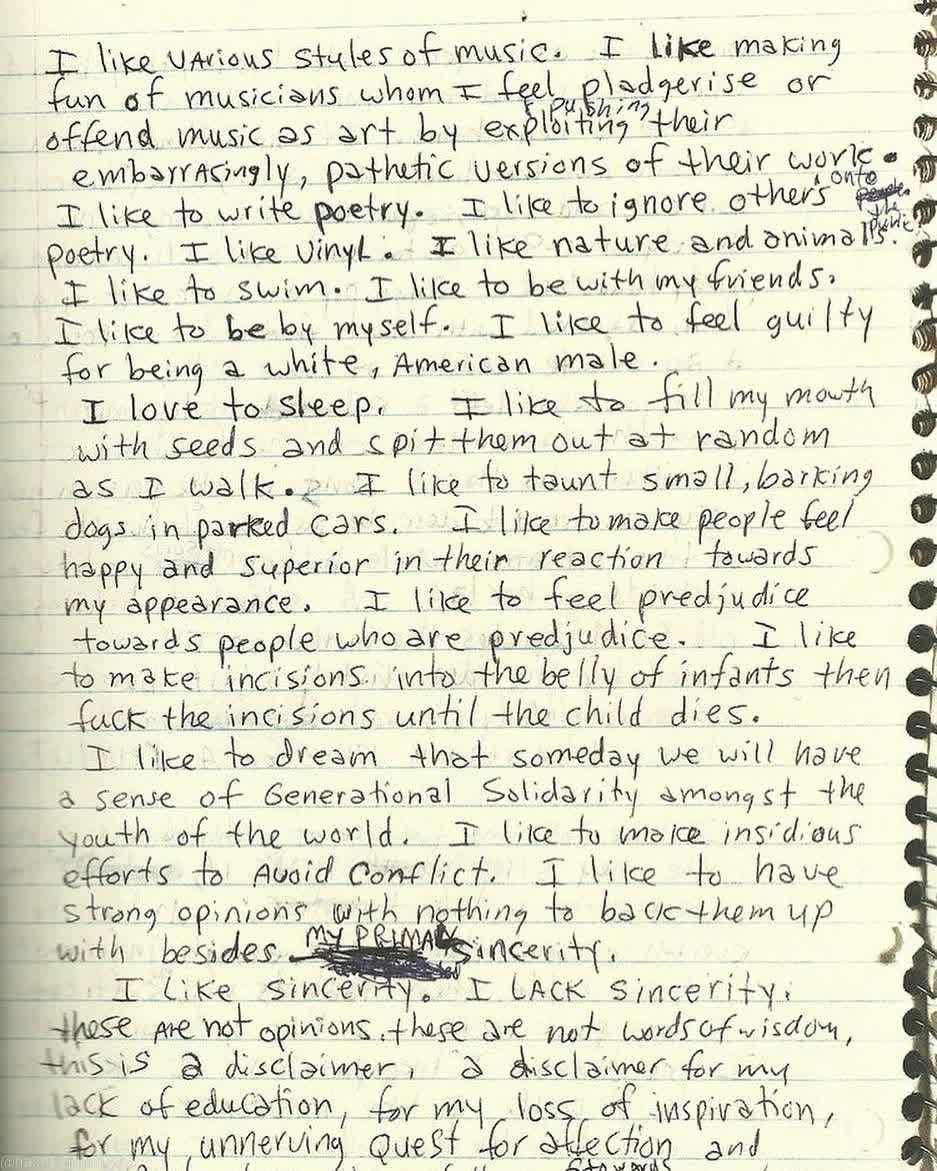 I like various styles of music. I like making
fun of musicians whom I feel pladgerise or
& pushing
offend music as art by exploiting their
embarrasingly, pathetic versions of their work.
onto
I like to write poetry. I like to ignore others'
the public
poetry. I like vinyl. I like nature and animals.
I like to swim. I like to be with my friends.
I like to be by myself. I like to feel guilty
for being a white, American male.
I love to sleep. I like to fill my mouth
with seeds and spit them out at random
as I walk. I like to taunt small, barking
dogs in parked cars. I like to make people feel
happy and superior in their reaction towards
my appearance. I like to feel predjudice
towards people who are predjudice.
[sentence omitted]
I like to dream that someday we will have
a sense of Generational Solidarity amongst the
youth of the world. I like to make insidious
efforts to Avoid Conflict. I like to have
strong opinions with nothing to back them up
MY PRIMAL
with besides sincerity.
I Like sincerity. I LACK sincerity.
these are not opinions. these are not words of wisdom,
this is a disclaimer, a disclaimer for my
lack of education, for my loss of inspiration,
for my unnerving Quest for affection and
towards